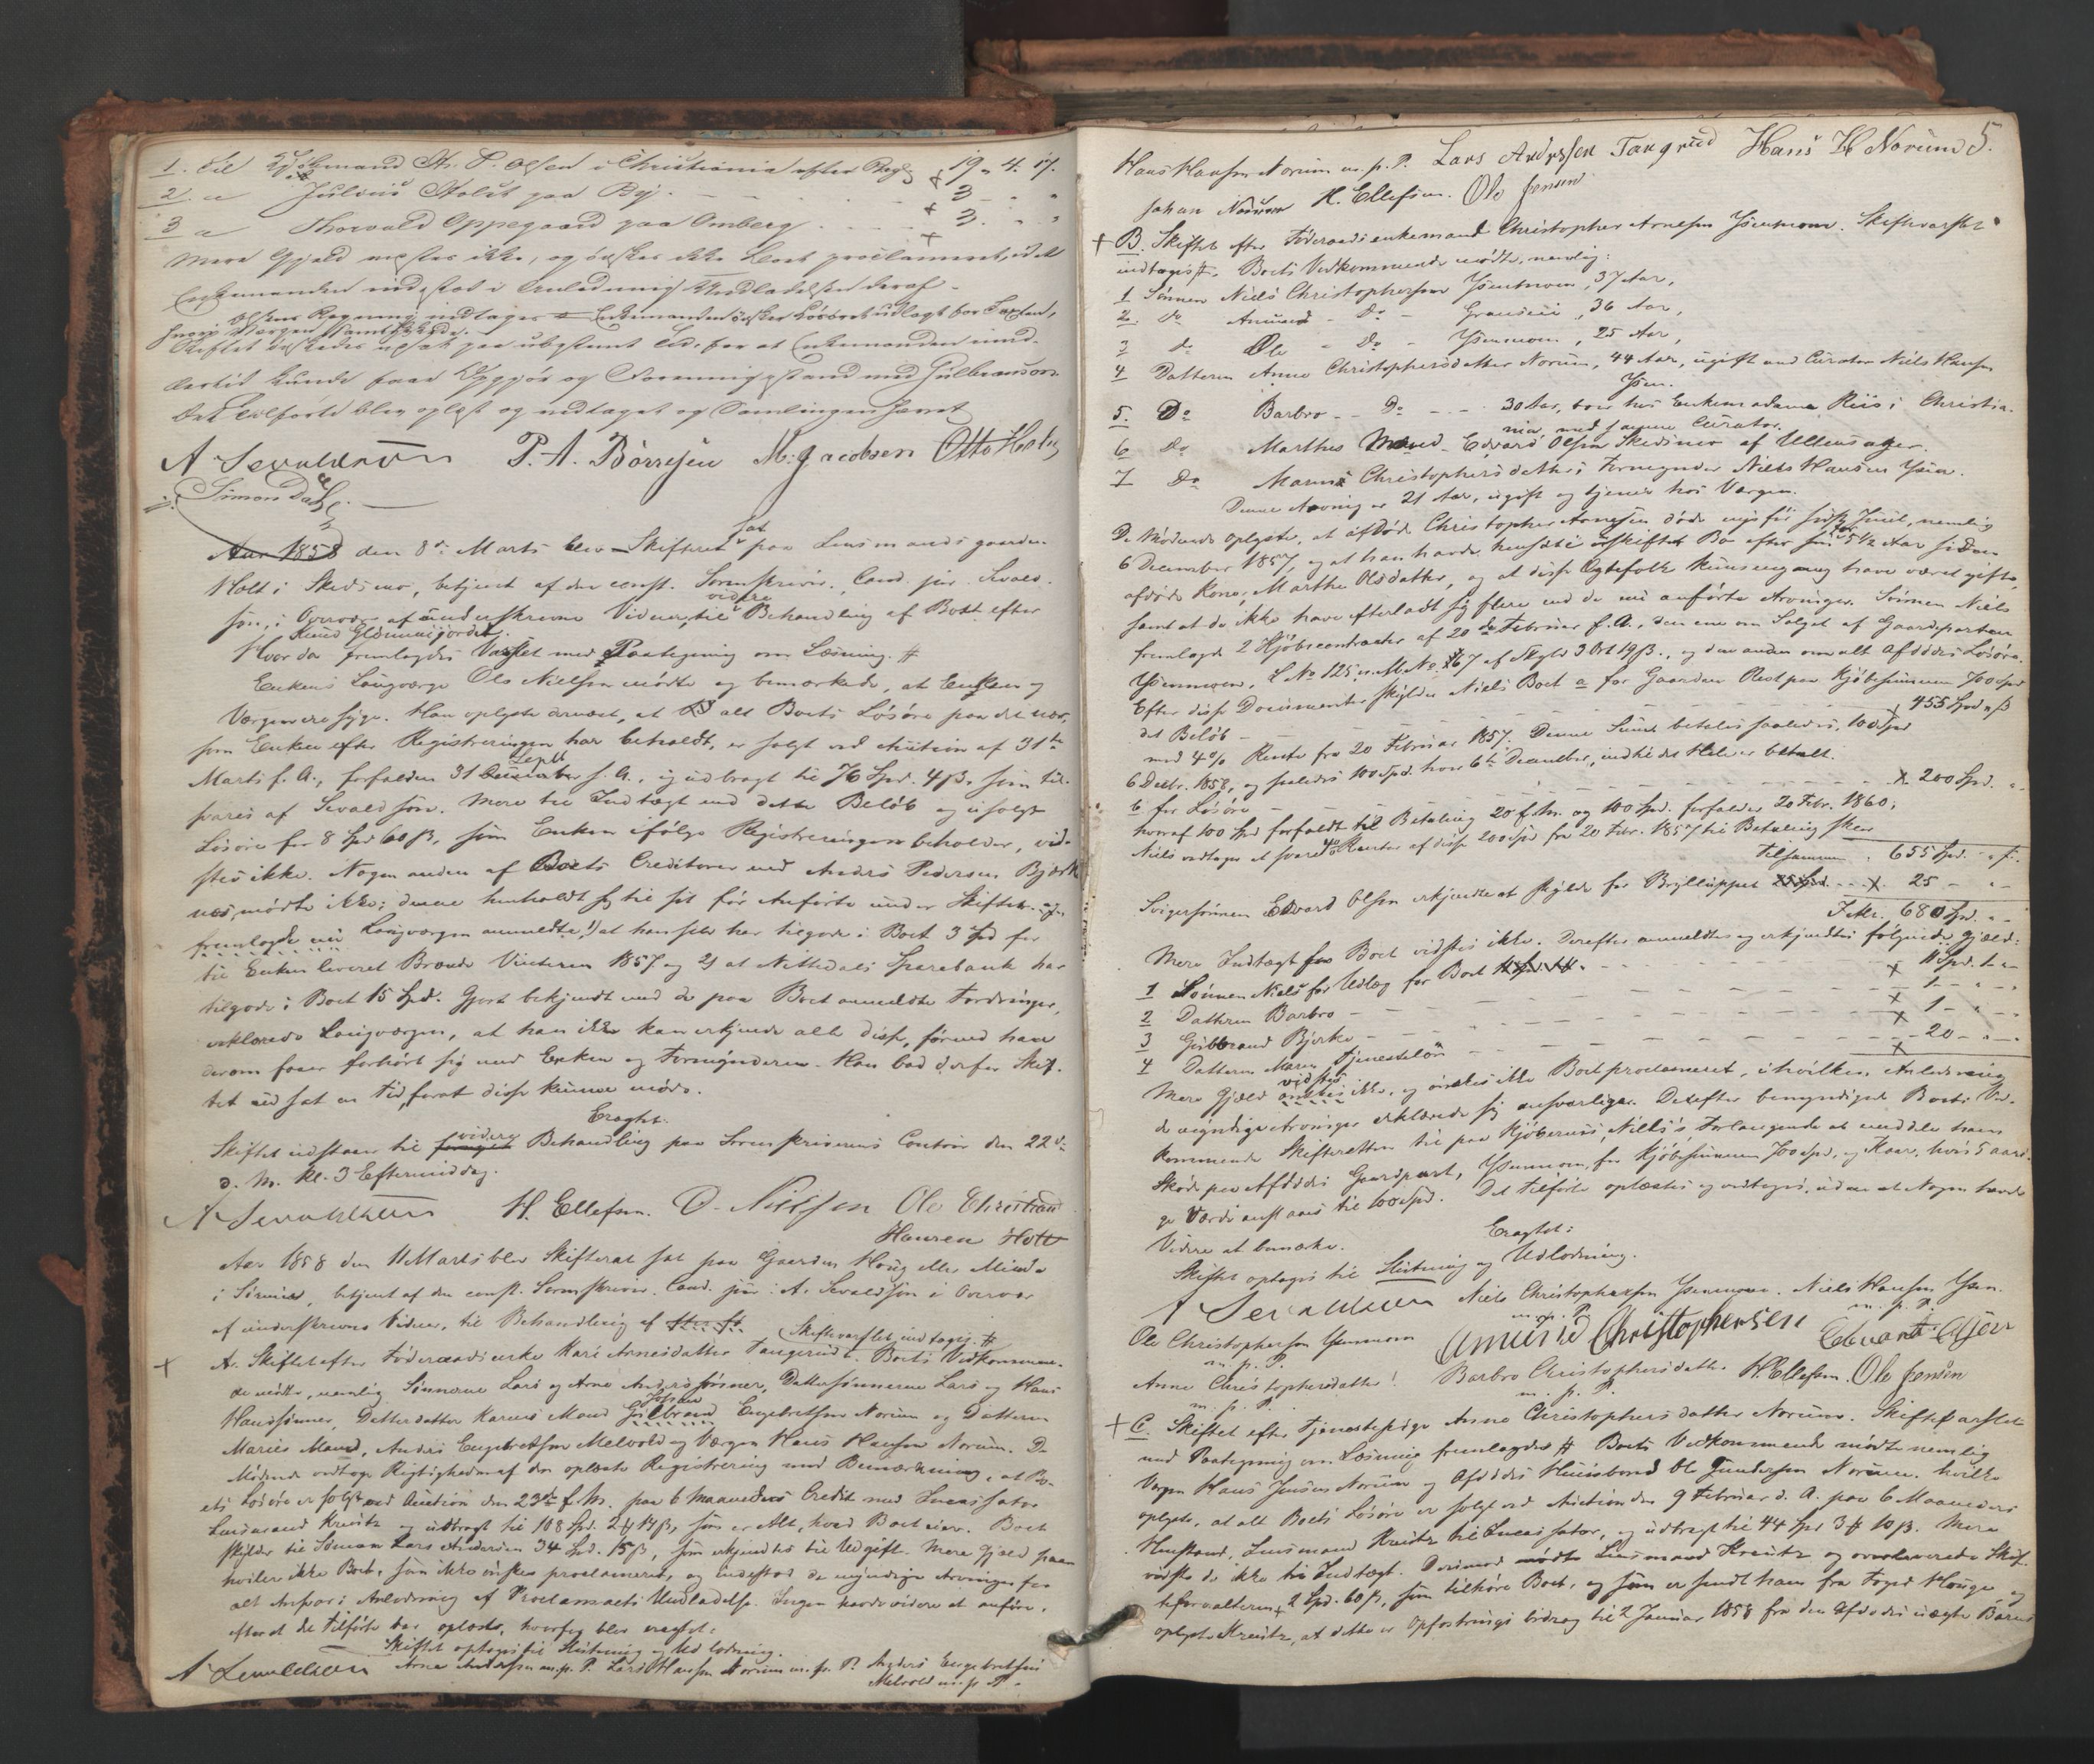 1. Til Kjøbmand A. P. Olsen i Christiania efter Regg 19 " 4. 17.
2. " Julius Holst paa By. 3 - " "
3 " Thorvald Oppegaard paa Omberg 3. " "
Mere Gjæld vistes ikke, og ønskes ikke Boet proclameret, idet
Enkemanden indestod i Anledning Undladelsen deraf.
Olsens Regning vedtages Enkemanden ønsker Løsøret udlagt for Taxten,
Skiftet udsættes paa ubestemt Tid, for at Enkemanden imid-
lertid kunde faae Opgjør og Foreening istand med Gulbrandson.
Det tilførte blev oplæst og vedtaget og Samlingen hævet
A Sevaldson P. A. Børresen M. Jacobsen Otto Holst
Simon Dahl.
Aar 1858 den 8de Marts blev Skifteret sat paa Lensmandsgaarden
Holt i Skedsmo, betjent af den const. Sorenskriver, Cand. jur. Sevald-
son, i Overvær af underskrevne Vidner, til videre Behandling af Boet efter
Knud Glømmigjordet.
Hvor da fremlagdes Varslet med Paategning om Læsning. #
Enkens Laugværge Ole Nielsen mødte og bemærkede, at Enken og
Værgen ere syge. Han oplyste dernæst, at alt Boets Løsøre paa det nær,
som Enken efter Registreringen har beholdt, er solgt ved Auction af 31te
Marts f. A., forfalden 31 Septbr December f. A., og udbragt til 76 Spd. 4 β, som til-
svares af Sevaldson. Mere til Indtægt end dette Beløb og usolgt
Løsøre for 8 Spd 60 β, som Enken ifølge Registreringen beholder, vid-
stes ikke. Nogen anden af Boets Creditorer end Anders Pedersen Bjerk
næs mødte ikke; denne henholdt sig til sit før Anførte under Skiftet
fremlagde nu Laugværgen anmeldte 1) at han selv har tilgode i Boet 3 Spd for
til Enken leveret Brænde Vinteren 1857 og 2) at Nittedals Sparebank har
tilgode i Boet 15 Spd. Gjort bekjendt med de paa Boet anmeldte Fordringer,
erklærede Laugværgen, at han ikke kan erkjende alle disse, førend han
derom faaer forhørt sig med Enken og Formynderen. Han bad derfor Skif-
tet udsat en Tid, forat disse kunne møde.
Eragtet:
Skiftet udstaaer til videre Behandling paa Sorenskriverens Contoir den 22de
d. M. Kl. 3 Eftermiddag.
A Sevaldson H. Ellefsen. O. Nilssen Ole Christian
Hansen Holt
Aar 1858 den 11 Marts blev Skifteret sat paa Gaarden Houg eller Minde
i Sørum, betjent af den const. Sorenskriver, Cand. jur. A. Sevaldson i Overvær
af underskrevne Vidner, til Behandling af
A. Skiftet efter Føderaadsenke Kari Arnesdatter Tangerud. Skiftevarslet indtages. # Boets Vedkommen-
de mødte, nemlig Sønnerne Lars og Arne Anderssønner, Dattersønnerne Lars og Hans
Hanssønner, Datterdatter Karens Mand Johan Gulbrand Engebretsen Norum og Datteren
Maries Mand, Anders Engebretsen Melvold og Værgen Hans Hansen Norum. De
Mødende vedtoge Rigtigheden af den oplæste Registrering med Bemærkning, at Bo-
ets Løsøre er solgt ved Auction den 23de f. M. paa 6 Maaneders Credit med Incassator
Lensmand Kreutz og udbragt til 108 Spd. 2 # 14 β, som er Alt, hvad Boet eier. Boet
skylder til Sønnen Lars Andersen 34 Spd. 15 β, som erkjendtes til Udgift. Mere Gjæld paa-
hviler ikke Boet, som ikke ønskes proclameret, og indestod de myndige Arvinger for
alt Ansvar i Anledning af Proclamaets Undladelse. Ingen havde videre at anføre,
efterat det Tilførte var oplæst, hvorfor blev eragtet:
Skiftet optages til Slutning og Udlodning.
A Sevaldson Arne Andersen m. p. P. Lars Hansen Norum m. p. P. Anders Engebretsen
Melvold m. p. P.
5.
Hans Hansen Norum m. p. P. Lars Andersen Tangrud Hans H Norum
Johan Norum H. Ellefsen. Ole Jensen
B. Skiftet efter Føderaadsenkemand Christopher Arnesen Ysenmoen. Skiftevarslet
indtages #. Boets Vedkommende mødte, nemlig:
1 Sønnen Niels Christophersen Ysenmoen, 37 Aar,
2. do Amund - Do - , 36 Aar,
3 do Ole - Do - Ysenmoen, 25 Aar,
4 Datteren Anne Christophersdatter Norum, 44 Aar, ugift med Curator Niels Hansen
Ysen.
5. Do Barbro - Do - 30 Aar, boer hos Enkemadame Riis i Christia-
nia, med samme Curator.
6 Do Marthes Mand Edvard Olsen Skedsmo af Ullensager.
7 Do Maren Christophersdatters Formynder Niels Hansen Ysen.
Denne Arving er 21 Aar, ugift og tjener hos Værgen.
De Mødende oplyste, at afdøde Christopher Arnesen døde nys før sidste Juul, nemlig
6 December 1857, og at han havde hensidt i uskiftet Bo efter sin for 5 1/2 Aar siden
afdøde Kone, Marthe Olsdatter, og at disse Ægtefolk kun engang have været gifte,
samt at de ikke have efterladt sig flere end de nu anførte Arvinger. Sønnen Niels
fremlagde 2 Kjøbecontracter af 20de Februar f. A., den ene om Salget af Gaardeparten
Ysenmoen, L No 125, M. No 267 af Skyld 3 Ort 19 β., og den anden om alt Afdødes Løsøre.
Efter disse Documenter skylder Niels Boet a for Gaarden Rest paa Kjøbesummen 700 Spd
det Beløb - - - 455 Spd " β
med 4 % Rente fra 20 Februar 1857. Denne Sum betales saaledes, 100 Spd
6 Decbr. 1858, og saaledes 100 Spd. hver 6te December, indtil det Hele er betalt.
b for Løsøre - - - 200 Spd. "
hvoraf 100 Spd forfaldt til Betaling 20 f. M. og 100 Spd. forfalder 20 Febr. 1860;
Niels vedtager at svare 4% Renter af disse 200 Spd fra 20 Febr. 1857 til Betaling skeer
Tilsammen 655 Spd. " β.
Svigersønnen Edvard Olsen erkjendte at skylde for Brylluppet 25 - " -
Ialt. 680 Spd. " -
Mere Indtægt for Boet vidstes ikke. Derefter anmeldtes og erkjendtes følgende Gjæld:
1 Sønnen Niels for Udlæg for Boet - 11 Spd. 1 - "
2 Datteren Barbro - - - 1 - " - "
3 Gulbrand Bjerke - - - 1 - " - "
4 Datteren Maren Tjenesteløn - - - 20 - " - "
Mere Gjæld vidstes ikke, og ønskes ikke Boet proclameret, i hvilken Anledning
de myndige Arvinger erklærede sig ansvarlige. Derefter bemyndigede Boets Ved-
kommende Skifteretten til paa Kjøberens, Niels's, Forlangende at meddele ham
Skjøde paa Afdødes Gaardpart, Ysenmoen, for Kjøbesummen 700 Spd, og Kaar, hvis 5 aari-
ge Værdi ansattes til 100 Spd. Det Tilførte oplæstes og vedtoges, uden at Nogen havde
Videre at bemærke.
Eragtet:
Skiftet optages til Slutning og Udlodning.
A Sevaldson Niels Christophersen Ysenmoen. Niels Hansen Ysen.
m. p. P. m. p. P.
Ole Christophersen Ysenmoen Amund Christophersen Edvard Olsen
m. p. P.
Anne Christophersdatter Barbro Christophersdatter H. Ellefsen. Ole Jensen
m. p. P. m. p. P.
C. Skiftet efter Tjenestepige Anne Christophersdatter Norum. Skiftevarslet
med Paategning om Læsning fremlagdes # Boets Vedkommende mødte nemlig
Værgen Hans Jensen Norum og Afdødes Huusbond Ole Gundersen Norum, hvilke
oplyste, at alt Boets Løsøre er solgt ved Auction den 9 Februar d. A. paa 6 Maaneders
Henstand, Lensmand Kreutz til Incassator, og udbragt til 44 Spd 3 # 10 β. Mere
vidste de ikke til Indtægt. Derimod mødte Lensmand Kreutz og overleverede Skif-
teforvalteren 2 Spd. 60 β, som tilhøre Boet, og som er sendt ham fra Foged Houge og
oplyste Kreutz, at dette er Opfostringsbidrag til 2 Januar 1858 fra den Afdødes uægte Barns